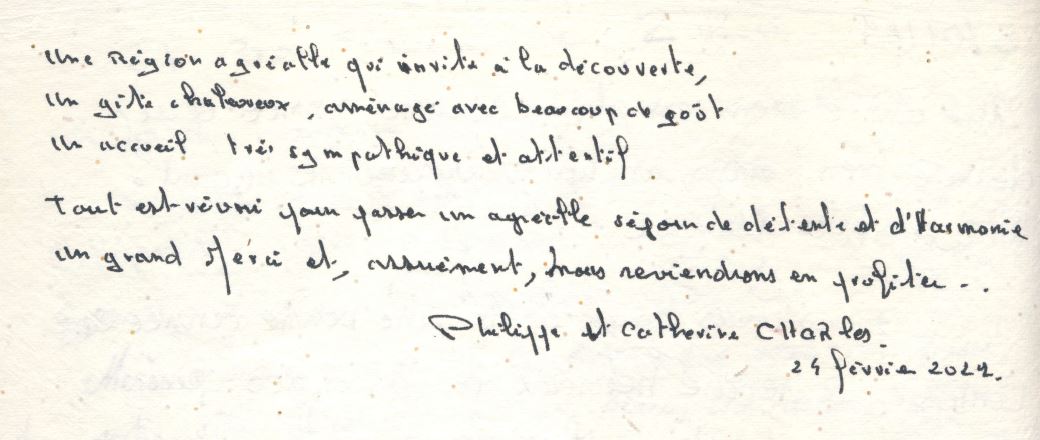 Une Région agréable qui invite à la découverte,
Un gîte chaleureux, aménagé avec beaucoup de goût
Un accueil très sympathique et attentif
Tout est réuni pour passer un agréable séjour de détente et d'Harmonie
Un grand Merci et, assurément, nous reviendrons en profiter..
Philippe et Catherine CHARles.
24 février 2022.